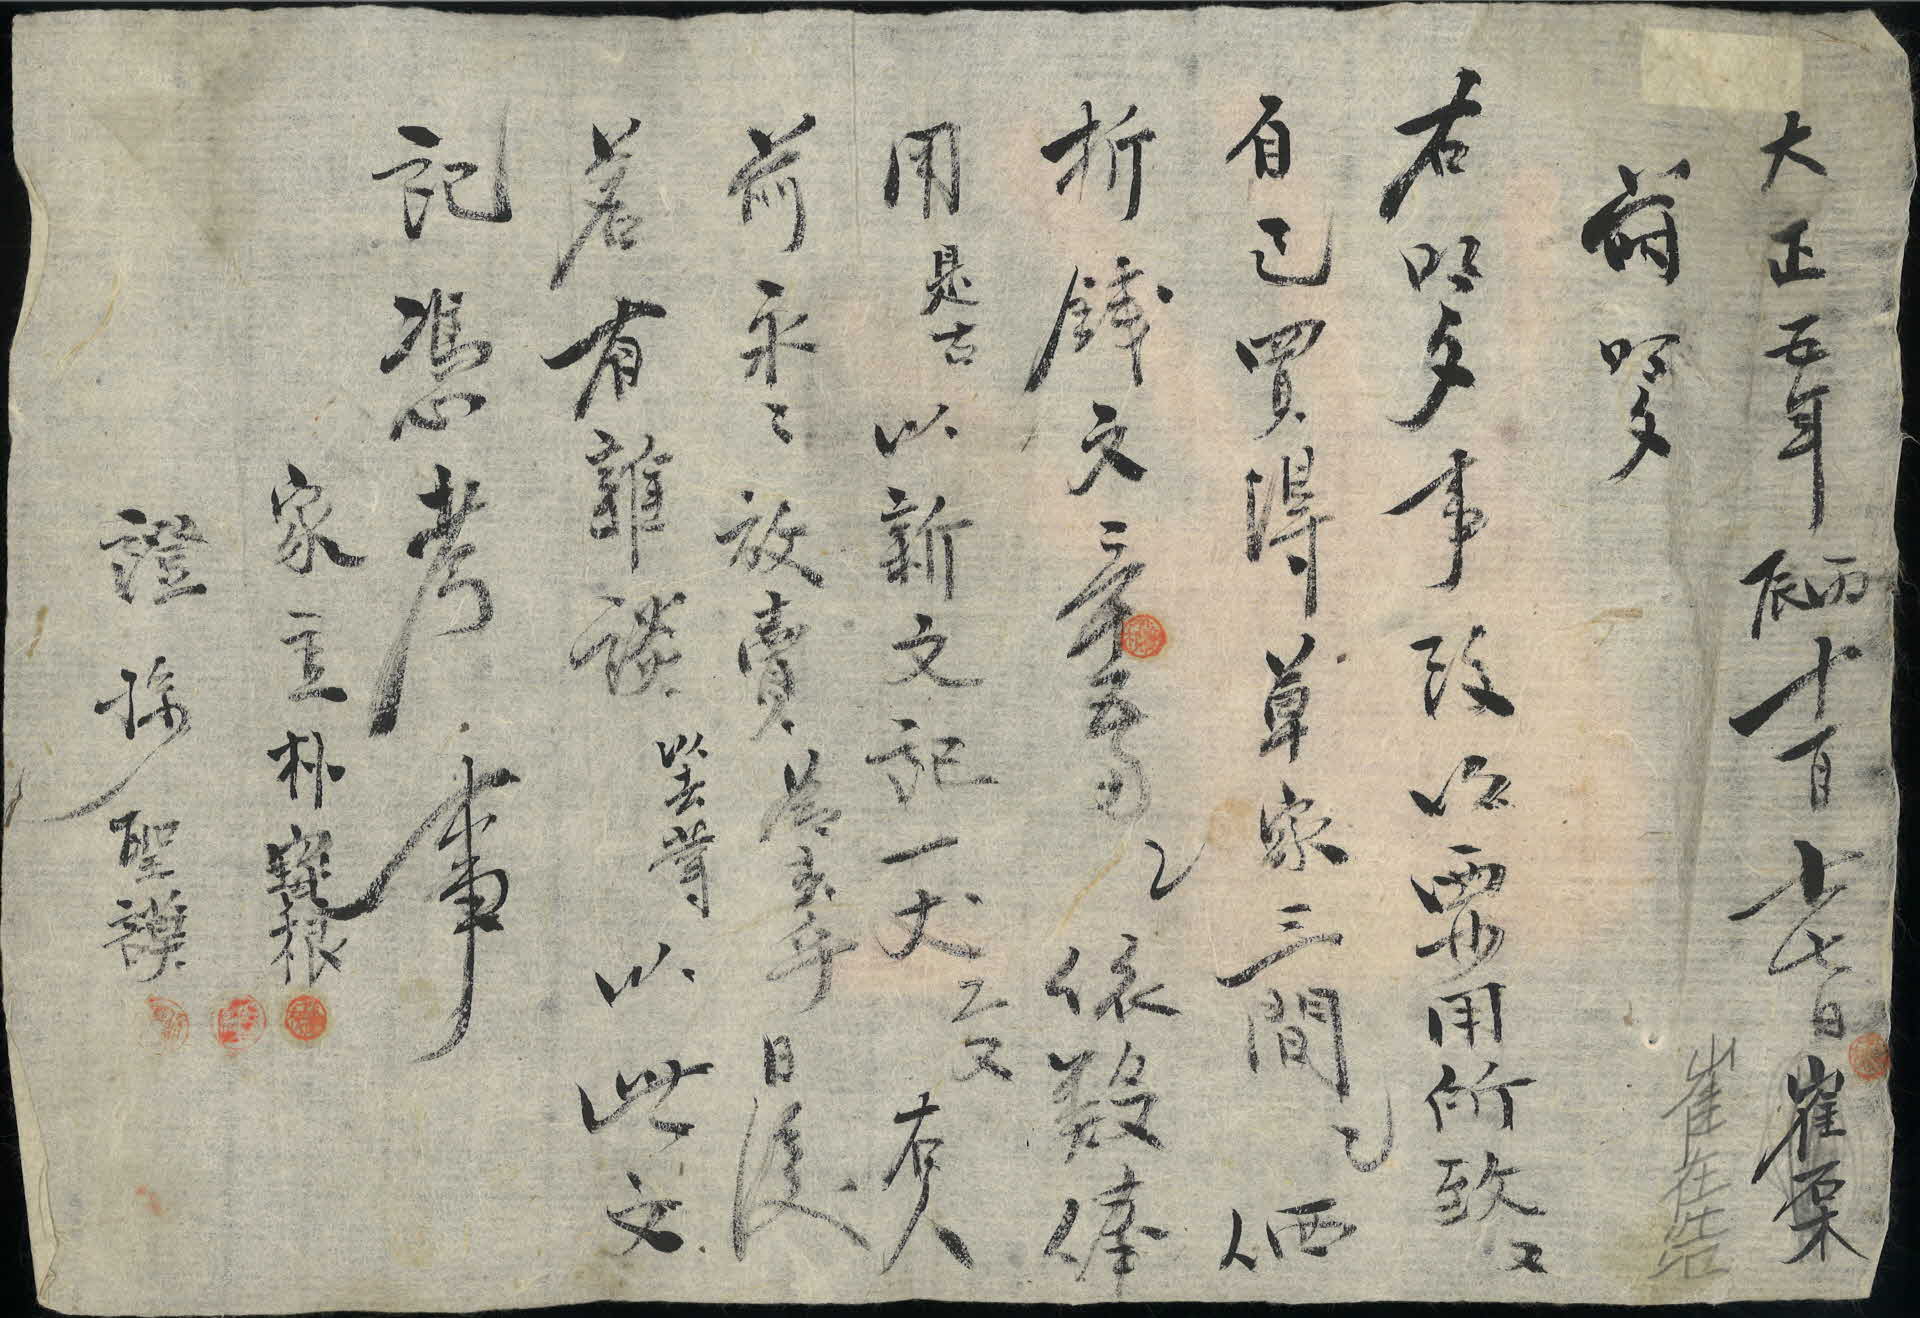 大正五年丙辰十一月十七日崔
前明文
右明文事段以要用所致
自己買得草家三間
折錢文 依數捧
用是古以新文記一丈
前永永放賣爲去乎日後
若有雜談是去等以此文
記憑考事
家主朴 根
證孫聖謨
崔在